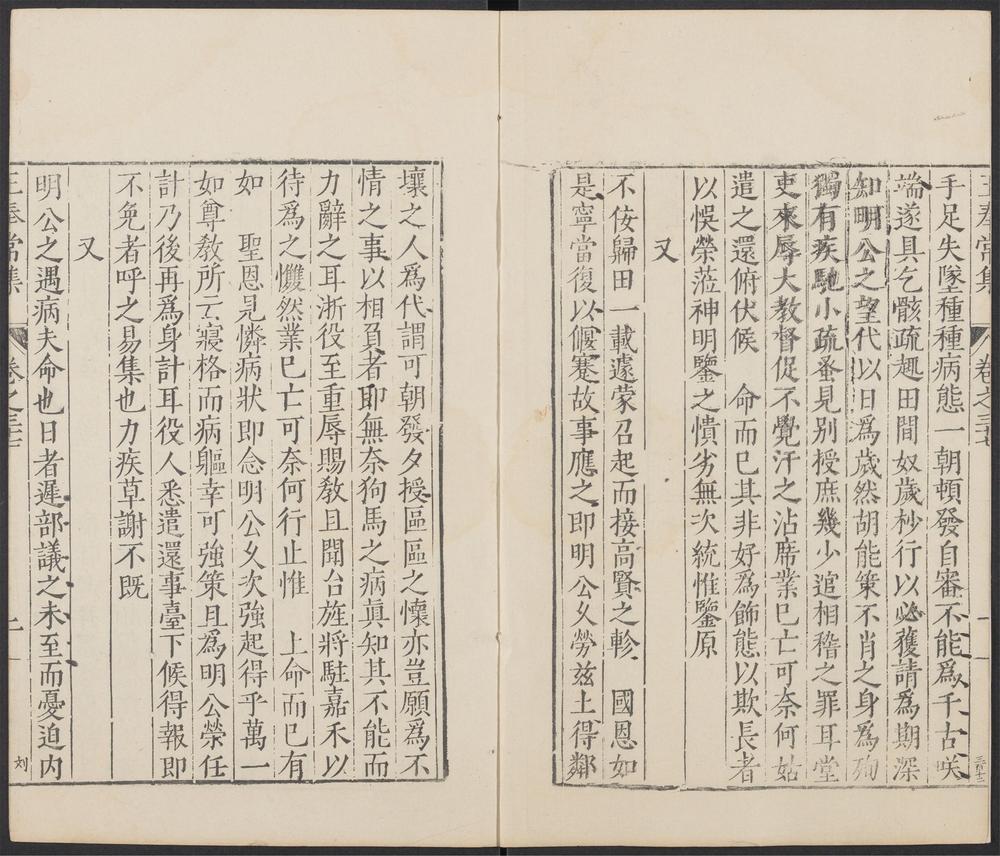 手足失墜種種病態一朝頓發自審不能爲千古咲
端遂具乞骸疏趣田間奴歲杪行以必獲請爲期深
知明公之望代以日爲歲然胡能策不肖之身爲殉
獨有疾馳小疏蚤見別授庶幾少逭相稽之罪耳堂
吏來辱大教督促不覺汗之沾席業已亡可奈何姑
遣之還俯伏候　命而已其非好爲飾態以欺長者
以悞榮蒞神明鑒之憒劣無次統惟鑒原
又
不佞歸田一載遽蒙召起而接高賢之軫　國恩如
是寧當復以偃蹇故事應之即明公久勞兹土得鄰
壤之人爲代謂可朝發夕授區區之懷亦豈願爲不
情之事以相負者耶無奈狗馬之病眞知其不能而
力辭之耳浙役至重辱賜敎且聞台旌將駐嘉禾以
待爲之戄然業已亡可奈何行止惟　上命而已有
如　聖恩見憐病狀即念明公久次強起得乎萬一
如尊敎所云寢格而病軀幸可強策且爲明公榮任
計乃後再爲身計耳役人悉遣還事臺下候得報即
不免者呼之易集也力疾草謝不既
又
明公之遇病夫命也日者遲部議之未至而憂迫内
王奉常集
卷之三十七
二
刻